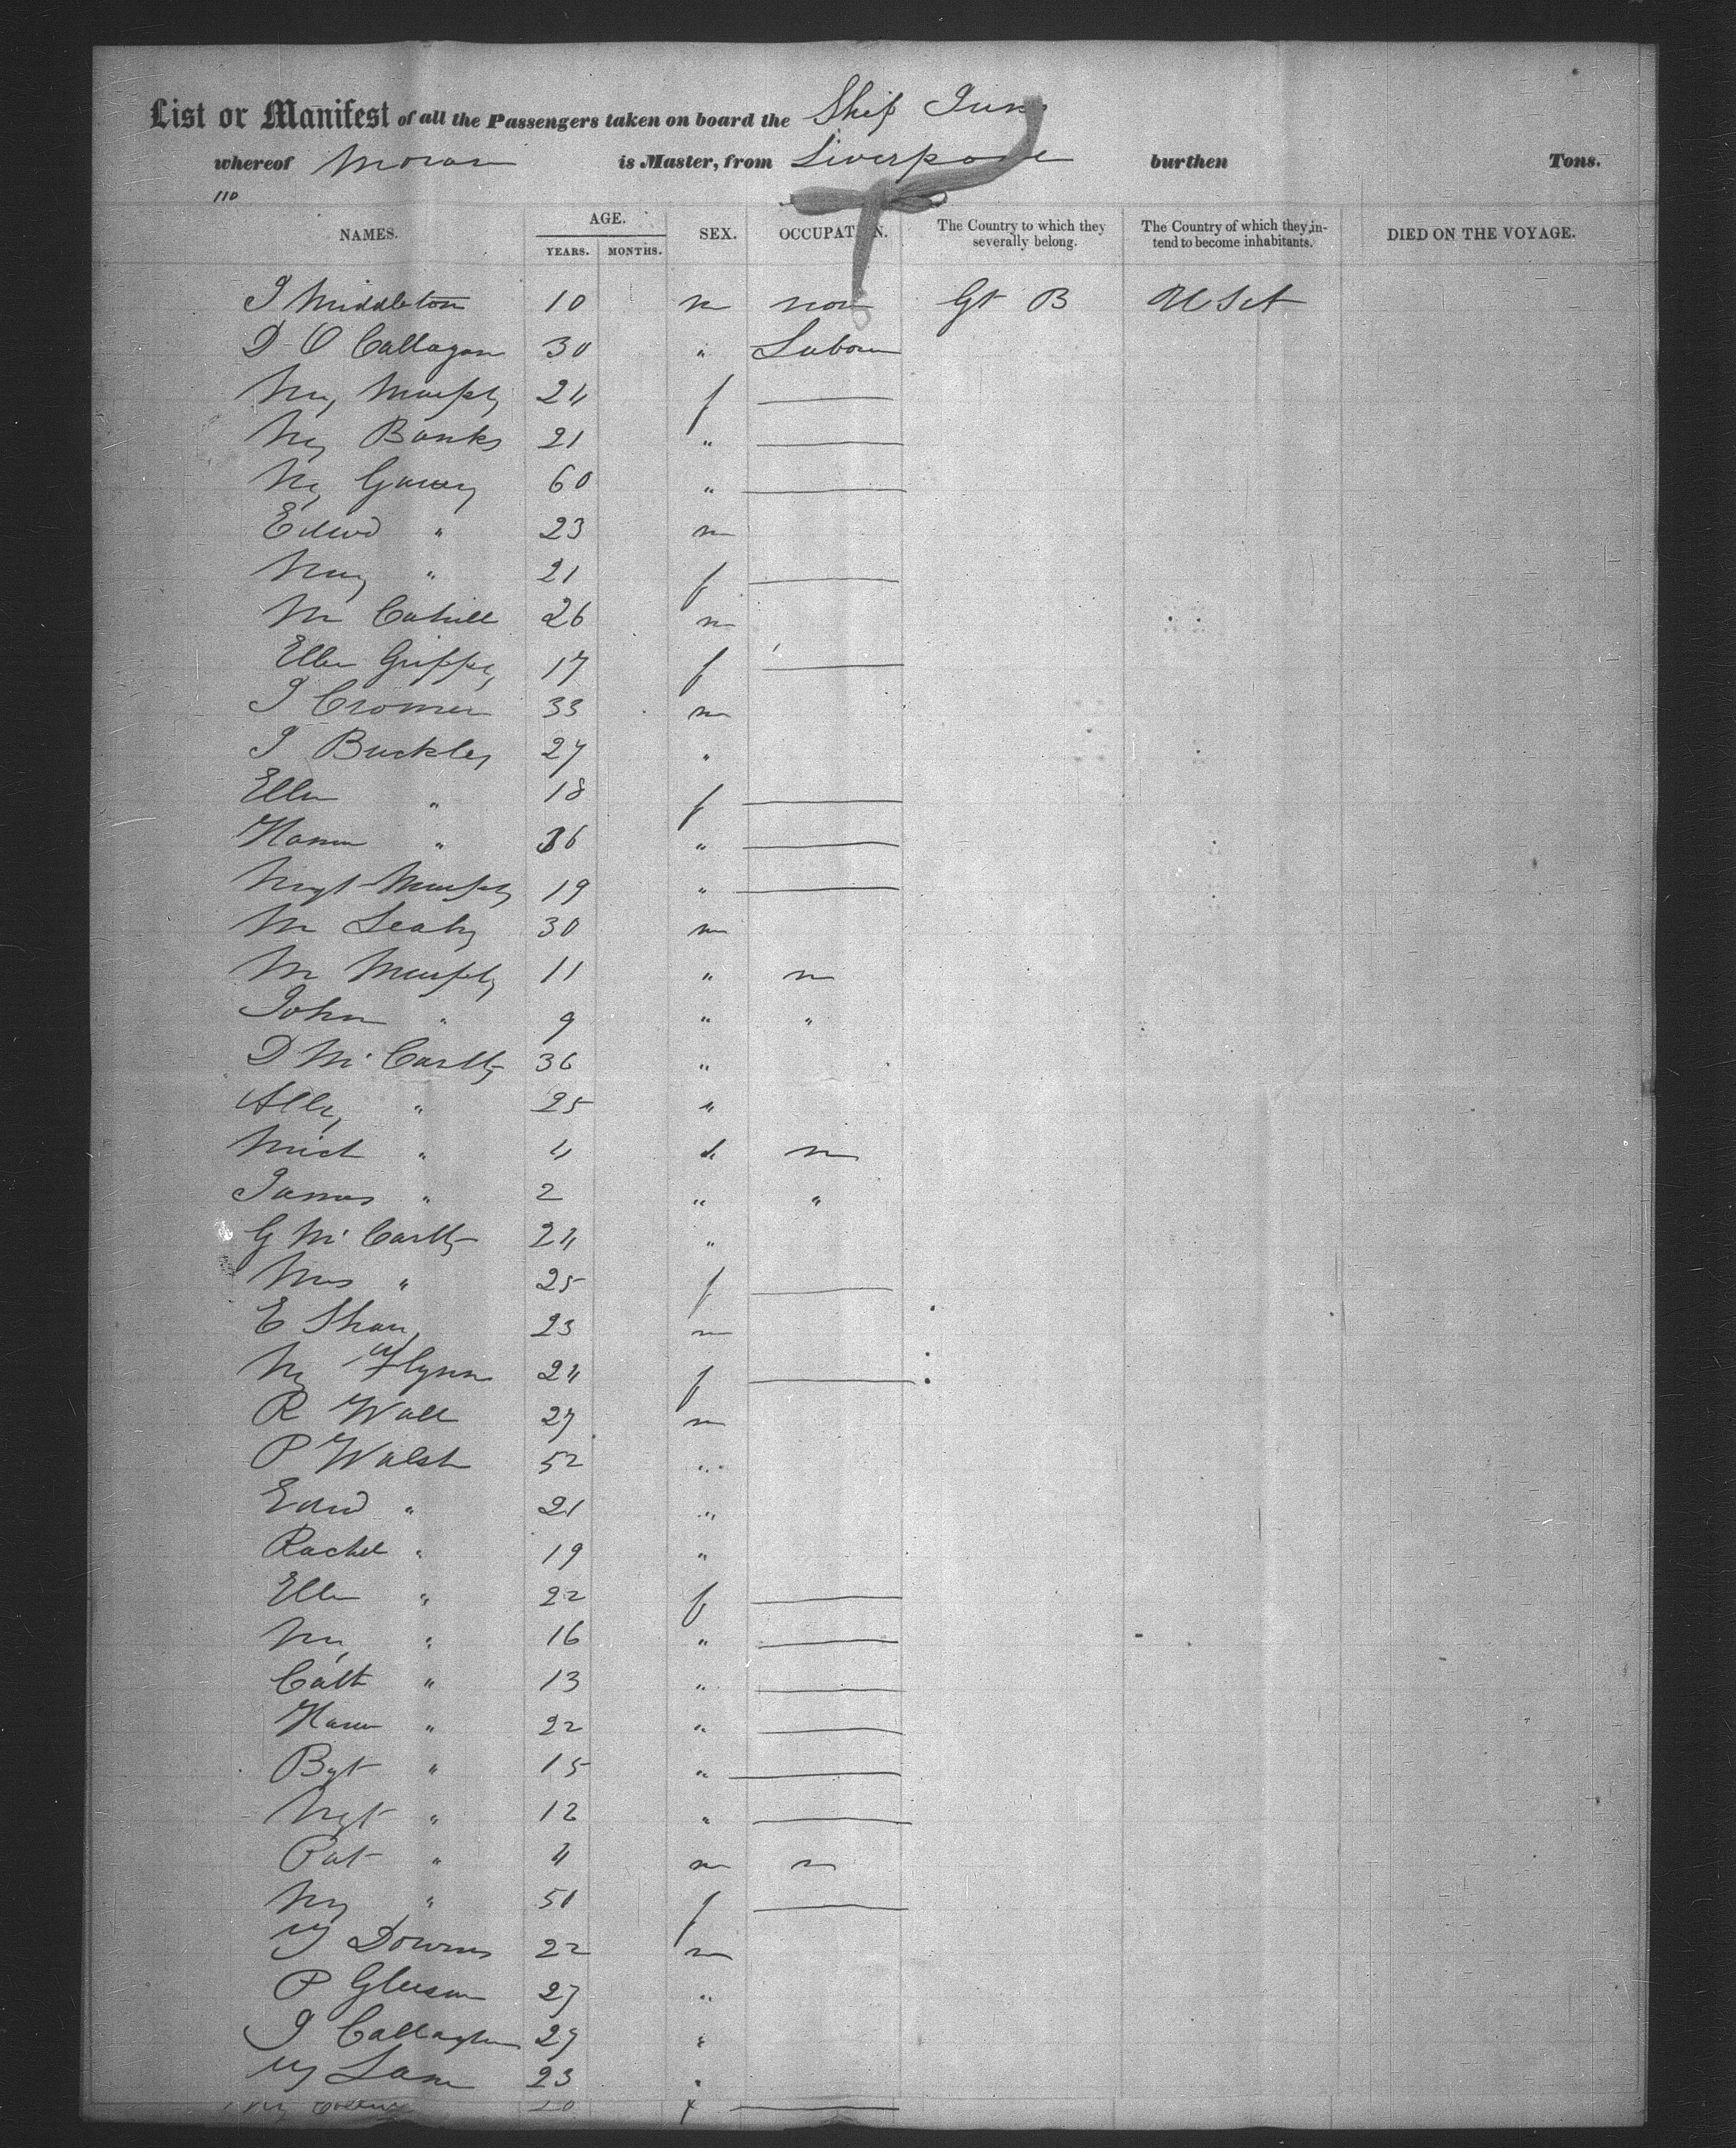 List or Manifest of all the Passengers taken on board the Ship
whereof Moran is Master, from Liverpool burthen Tons.
110
NAMES. AGE. YEARS. MONTHS. SEX. OCCUPATION. The Country to which they severally belong. The Country of which they intend to become inhabitants. DIED ON THE VOYAGE.
J Middleton 10 m non Gt B U St
D O Callagan 30 " Labour
My Murphy 24 f
My Banks 21 "
My 60 "
Edwd " 23 m
Mary " 21 f
M Cahill 26 m
Ellen 17 f
J Cromer 33 m
J Buckley 27 "
Ellen " 18 f
Hanna " 36 "
Mrgt Murphy 19 "
M Leahy 30 m
M Murphy 11 " n
John " 9 " "
D Mc Carthy 36 "
" 25 "
Mich " 4 " n
James " 2 " "
G Mc Carthy 24 "
Mrs " 25 f
E Shaw 23 m
My Flynn 24 f
R Wall 27 m
P Walsh 52 "
Edwd " 21 "
Rachel " 19 "
Ellen " 22 f
My " 16 "
Cath " 13 "
Hann " 22 "
Bgt " 15 "
Mgt " 12 "
Pat " 4 m n
My " 50 f
W Downs 22 m
P Gleeson 27 "
J Callaghan 29 "
W Lane 23 "
My f